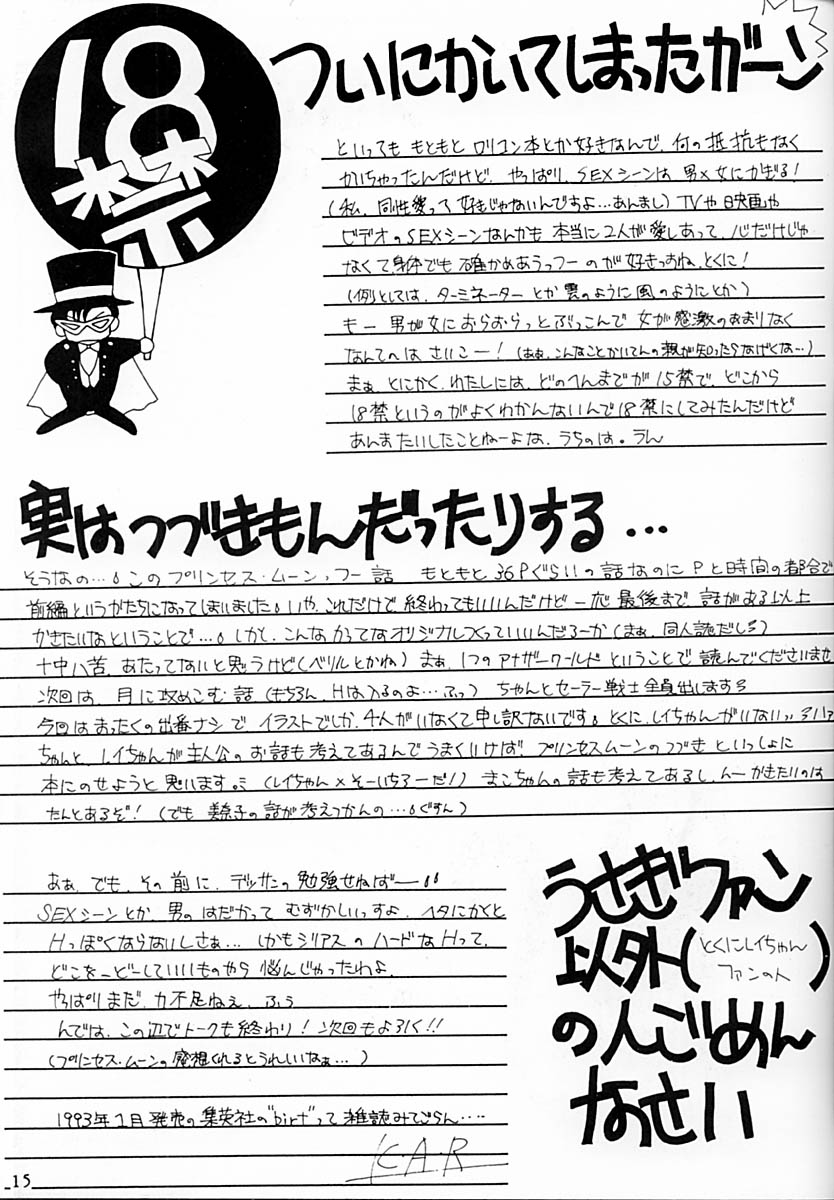 18
禁
ついにかいてしまったガーン
といっても もともと ロリコン本とか好きなんで、何の抵抗もなく
かいちゃったんだけど、やっぱり、SEXシーンは 男×女にかぎる!
(私、同性愛って好きじゃないんですよ…あんまし) TVや映画や
ビデオのSEXシーンなんかも 本当に2人が愛しあって、心だけじゃ
なくて身体でも 確かめあうっつーのが好きっすね、とくに!
(例としては、ターミネーターとか 雲のように風のようにとか)
もー 男が女におらおらっとぶっこんで 女が感激のあまりなく
なんてのはさいこー!(あぁ、こんなことかいてんの親が知ったらなげくな…)
まぁ、とにかく、わたしには、どのへんまでが15禁で、どこから
18禁というのがよくわかんないんで18禁にしてみたんだけど
あんまたいしたことねーよな、うちのは。うん
実はつづきもんだったりする…
そうなの…。このプリンセス・ムーンっつー話 もともと36Pぐらいの話なのにPと時間の都合で
前編というかたちになってしまいました。いや、これだけで終わってもいいんだけど一応最後まで話がある以上
かきたいなということで…。しかし、こんなかってなオリジナルつくっていいんだろーか(まぁ、同人誌だしな)
十中八苦、あたってないと思うけど(ベリルとかね)まぁ、1つのアナザーワールドということで読んでくださいませ
次回は、月に攻めこむ話(もちろん、Hは入るのよ…ふっ) ちゃんとセーラー戦士全員出します
今回はまったくの出番ナシで、イラストでしか、4人がいなくて申し訳ないです。とくに、レイちゃんがいない
ちゃんと、レイちゃんが主人公のお話も考えてあるんでうまくいけば、プリンセスムーンのつづきといっしょに
本にのせようと思います。(レイちゃん×そーいちろーだ!) まこちゃんの話も考えてあるし、んーかきたいのは
たんとあるぞ!(でも 美奈子の話が考えつかんの…。ぐすん)
あぁ、でも、その前に、デッサンの勉強せねばー
SEXシーンとか、男のはだかって むずかしいっすよ、ヘタにかくと
Hっぽくならないしさぁ… しかもシリアスのハードなHって、
どこをーどーしていいものやら 悩んじゃったわよ、
やっぱりまだ、力不足ねぇ、ふぅ
んでは、この辺でトークも終わり! 次回もよろしく!!
(プリンセス・ムーンの感想くれるとうれしいなぁ…)
1993年1月発売の集英社の"birt"って雑誌みてごらん…
K・A・R
うさぎファン
以外(とくにレイちゃんファンの人)
の人ごめん
なさい
15